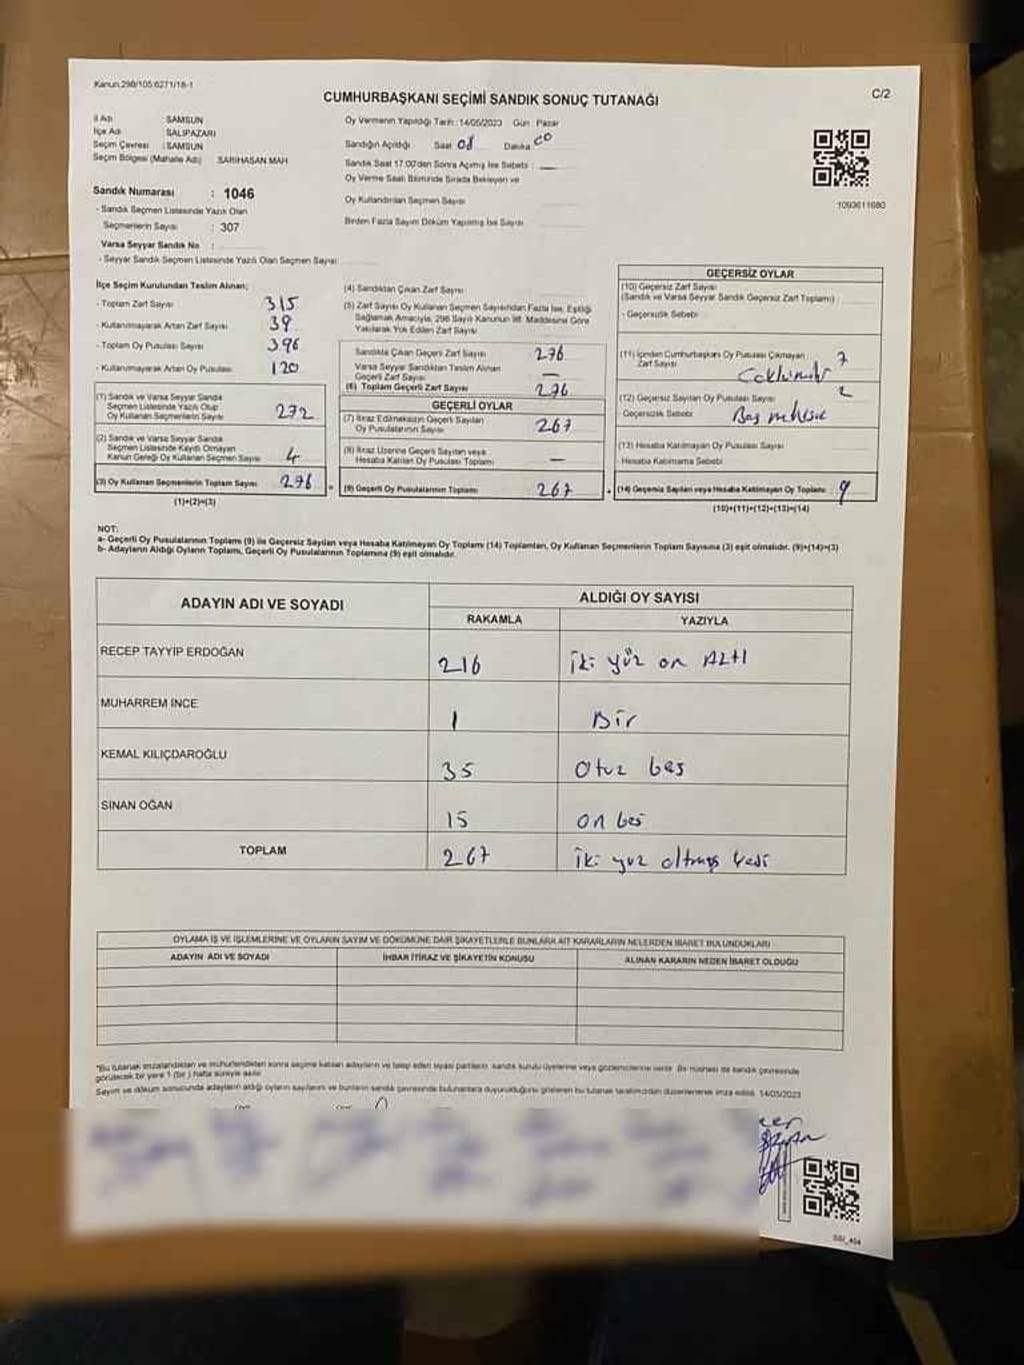 Kanun:298/105:6271/18-1
C/2
CUMHURBAŞKANI SEÇİMİ SANDIK SONUÇ TUTANAĞI
İl Adı : SAMSUN
İlçe Adı : SALIPAZARI
Seçim Çevresi : SAMSUN
Seçim Bölgesi (Mahalle Adı) : SARIHASAN MAH
Sandık Numarası : 1046
- Sandık Seçmen Listesinde Yazılı Olan
Seçmenlerin Sayısı : 307
Varsa Seyyar Sandık No :
- Seyyar Sandık Seçmen Listesinde Yazılı Olan Seçmen Sayısı
Oy Vermenin Yapıldığı Tarih : 14/05/2023 Gün : Pazar
Sandığın Açıldığı Saat 08 Dakika 00
Sandık Saat 17.00'den Sonra Açılmış İse Sebebi : —
Oy Verme Saati Bitiminde Sırada Bekleyen ve
Oy Kullandırılan Seçmen Sayısı
Birden Fazla Sayım Döküm Yapılmış İse Sayısı
1093611680
İlçe Seçim Kurulundan Teslim Alınan;
- Toplam Zarf Sayısı : 315
- Kullanılmayarak Artan Zarf Sayısı 39
- Toplam Oy Pusulası Sayısı 396
- Kullanılmayarak Artan Oy Pusulası 120
(1) Sandık ve Varsa Seyyar Sandık
Seçmen Listesinde Yazılı Olup
Oy Kullanan Seçmenlerin Sayısı 272
(2) Sandık ve Varsa Seyyar Sandık
Seçmen Listesinde Kaydı Olmayan
Kanun Gereği Oy Kullanan Seçmen Sayısı 4
(3) Oy Kullanan Seçmenlerin Toplam Sayısı 276
(1)+(2)=(3)
(4) Sandıktan Çıkan Zarf Sayısı
(5) Zarf Sayısı Oy Kullanan Seçmen Sayısından Fazla İse, Eşitliği
Sağlamak Amacıyla, 298 Sayılı Kanunun 98. Maddesine Göre
Yakılarak Yok Edilen Zarf Sayısı
Sandıkta Çıkan Geçerli Zarf Sayısı 276
Varsa Seyyar Sandıktan Teslim Alınan
Geçerli Zarf Sayısı —
(6) Toplam Geçerli Zarf Sayısı 276
GEÇERLİ OYLAR
(7) İtiraz Edilmeksizin Geçerli Sayılan
Oy Pusulalarının Sayısı 267
(8) İtiraz Üzerine Geçerli Sayılan veya
Hesaba Katılan Oy Pusulası Toplamı —
(9) Geçerli Oy Pusulalarının Toplamı 267
GEÇERSİZ OYLAR
(10) Geçersiz Zarf Sayısı
(Sandık ve Varsa Seyyar Sandık Geçersiz Zarf Toplamı)
- Geçersizlik Sebebi
(11) İçinden Cumhurbaşkanı Oy Pusulası Çıkmayan 7
Zarf Sayısı
(12) Geçersiz Sayılan Oy Pusulası Sayısı 2
Geçersizlik Sebebi
(13) Hesaba Katılmayan Oy Pusulası Sayısı
- Hesaba Katılmama Sebebi
(14) Geçersiz Sayılan veya Hesaba Katılmayan Oy Toplamı 9
(10)+(11)+(12)+(13)=(14)
NOT:
a- Geçerli Oy Pusulalarının Toplamı (9) ile Geçersiz Sayılan veya Hesaba Katılmayan Oy Toplamı (14) Toplamları, Oy Kullanan Seçmenlerin Toplam Sayısına (3) eşit olmalıdır. (9)+(14)=(3)
b- Adayların Aldığı Oyların Toplamı, Geçerli Oy Pusulalarının Toplamına (9) eşit olmalıdır.
ADAYIN ADI VE SOYADI
ALDIĞI OY SAYISI
RAKAMLA YAZIYLA
RECEP TAYYİP ERDOĞAN 216 iki yüz on Altı
MUHARREM İNCE 1 Bir
KEMAL KILIÇDAROĞLU 35 Otuz beş
SİNAN OĞAN 15 on beş
TOPLAM 267 iki yüz altmış yedi
OYLAMA İŞ VE İŞLEMLERİNE VE OYLARIN SAYIM VE DÖKÜMÜNE DAİR ŞİKAYETLERLE BUNLARA AİT KARARLARIN NELERDEN İBARET BULUNDUKLARI
ADAYIN ADI VE SOYADI İHBAR İTİRAZ VE ŞİKAYETİN KONUSU ALINAN KARARIN NEDEN İBARET OLDUĞU
*Bu tutanak imzalandıktan ve mühürlendikten sonra seçime katılan adayların ve talep eden siyasi partilerin, sandık kurulu üyelerine veya gözlemcilerine verilir. Bir nüshası da sandık çevresinde
görülecek bir yere 1 (bir) hafta süreyle asılır.
Sayım ve döküm sonucunda adayların aldığı oyların sayılarını ve bunların sandık çevresinde bulunanlara duyurulduğunu gösteren bu tutanak tarafımızdan düzenlenerek imza edildi. 14/05/2023